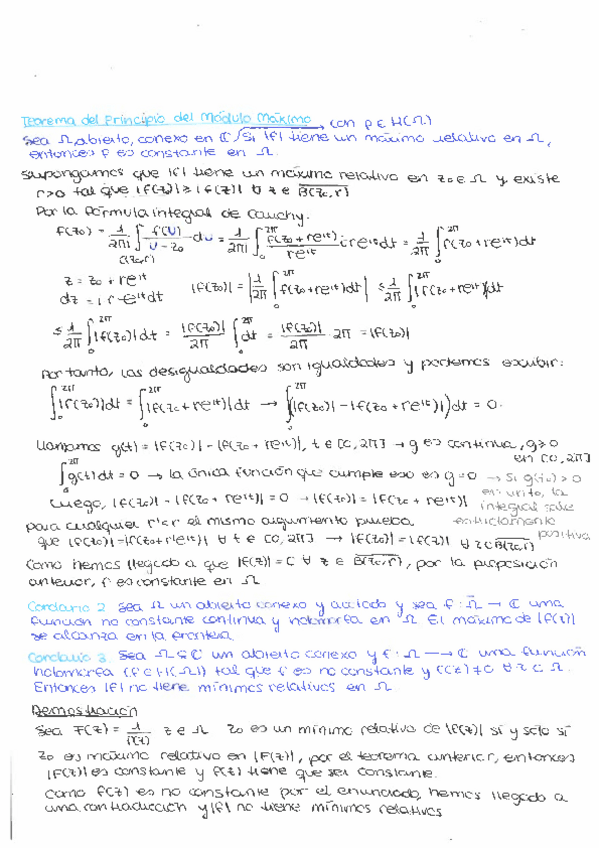 Teorema del Principio del Módulo Máximo
con f ∈ H(Ω)
Sea Ω abierto, conexo en ℂ. Si |f| tiene un máximo relativo en Ω,
entonces f es constante en Ω.
Supongamos que |f| tiene un máximo relativo en z₀ ∈ Ω y existe
r>0 tal que |f(z₀)| ≥ |f(z)| ∀ z ∈ B(z₀,r)
Por la fórmula integral de Cauchy.
f(z₀) = 1/2πi ∫_{C(z₀,r)} f(u)/(u-z₀) du = 1/2πi ∫₀^{2π} f(z₀+re^{it})/re^{it} ire^{it}dt = 1/2π ∫₀^{2π} f(z₀+re^{it})dt
z = z₀ + re^{it}
dz = i re^{it}dt
|f(z₀)| = |1/2π ∫₀^{2π} f(z₀+re^{it})dt| ≤ 1/2π ∫₀^{2π} |f(z₀+re^{it})|dt
≤ 1/2π ∫₀^{2π} |f(z₀)|dt = |f(z₀)|/2π ∫₀^{2π} dt = |f(z₀)|/2π · 2π = |f(z₀)|
Por tanto, las desigualdades son igualdades y podemos escribir:
∫₀^{2π} |f(z₀)|dt = ∫₀^{2π} |f(z₀+re^{it})|dt → ∫₀^{2π} (|f(z₀)| - |f(z₀+re^{it})|)dt = 0.
Llamamos g(t) = |f(z₀)| - |f(z₀+re^{it})|, t ∈ [0,2π] → g es continua, g≥0
en [0,2π]
∫₀^{2π} g(t)dt = 0 → la única función que cumple eso es g=0 → Si g(t₀) > 0
en un to, la
Luego, |f(z₀)| - |f(z₀+re^{it})| = 0 → |f(z₀)| = |f(z₀+re^{it})|
integral sale
para cualquier r'<r el mismo argumento prueba
estrictamente
positiva
que |f(z₀)| - |f(z₀+re^{it})| ∀ t ∈ [0,2π] → |f(z₀)| = |f(z)| ∀ z ∈ B(z₀,r)
Como hemos llegado a que |f(z)| = C ∀ z ∈ B(z₀,r), por la proposición
anterior, f es constante en Ω
Corolario 2 Sea Ω un abierto conexo y acotado y sea f: Ω̄ → ℂ una
función no constante continua y holomorfa en Ω El máximo de |f(z)|
se alcanza en la frontera
Corolario 3. Sea Ω ⊆ ℂ un abierto conexo y f: Ω → ℂ una función
holomorfa (f ∈ H(Ω)) tal que f es no constante y f(z) ≠ 0 ∀ z ∈ Ω.
Entonces |f| no tiene mínimos relativos en Ω.
Demostración
Sea F(z) = 1/f(z) z ∈ Ω z₀ es un mínimo relativo de |f(z)| si y solo si
z₀ es máximo relativo en |F(z)|, por el teorema anterior, entonces
|F(z)| es constante y f(z) tiene que ser constante.
Como f(z) es no constante por el enunciado, hemos llegado a
una contradicción y |f| no tiene mínimos relativos